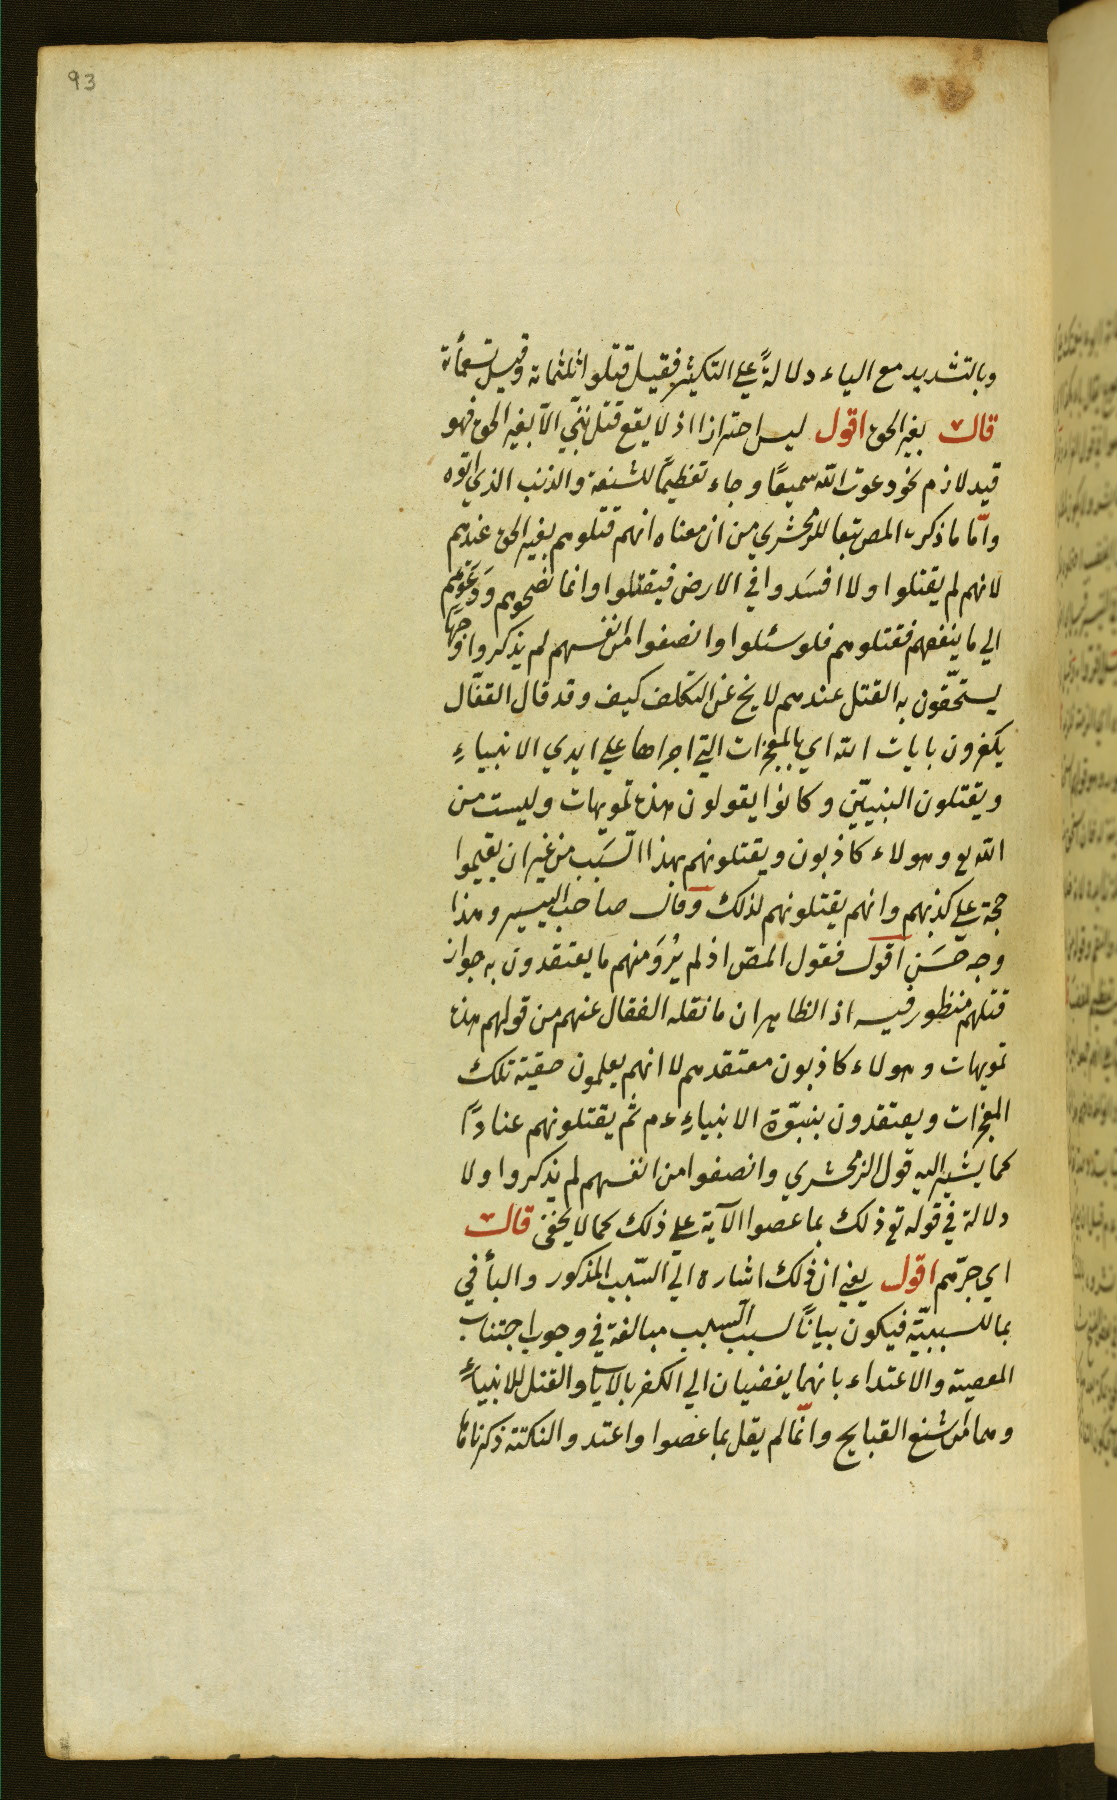 93
وبالتشديد مع الياء دلالةً علي التكثير فقيل قتلوا ثلثمائة وقيل تسعمأئة
قالت بغير الحق اقول ليس احترازا اذ لا يقع قتل نبيّ الّا بغير الحق فهو
قيد لازم نحو دعوت الله سميعًا وجاء تعظيمًا للشنعة والذنب الذي اتوه
وامّا ما ذكره المص تبعا للزمخشري من ان معناه انهم قتلوهم بغير الحق عندهم
لانهم لم يقتلوا ولا افسَدوا في الارض فيقتلوا وانما نصحوهم وَدَعَوهم
الي ما ينفعهم فقتلوهم فلو سئلوا وانصفوا من انفسهم لم يذكروا وجهًا
يستحّقون به القتل عندهم لا يخ عن التكلف كيف وقد قال القفّال
يكفرون بايات الله اي بالمعجزات التي اجراها علي ايدي الانبياءِ
ويقتلون النبيّين وكانوا يقولون هذه تمويهات وليست من
الله تع وهولاء كاذبون ويقتلونهم بهذا السَّبب من غير ان يقيموا
حجة علي كذبهم وانهم يقتلونهم لذلك وقال صاحب التيسير وهذا
وجه حَسَن اقول فقول المص اذ لم يُرَو منهم ما يعتقدون به جواز
قتلهم منظور فيه اذ الظاهر ان ما نقله القفال عنهم من قولهم هذه
تمويهات وهولاء كاذبون معتقدهم لا انهم يعلمون حقيّة تلك
المعجزات ويعتقدون بنبوّة الانبياءِ ءم ثم يقتلونهم عنادًا
كما يشير اليه قول الزمخشري وانصفوا من انفسهم لم يذكروا ولا
دلالة في قوله تع ذلك بما عصوا الآية علي ذلك كما لا يخفي قالت
اي جرّهم اقول يعني ان ذلك اشارة الي السّبب المذكور والبأ في
بما للسببيّة فيكون بيانًا لسبب السبب مبالغة في وجوب اجتناب
المعصية والاعتداء بانهما يفضيان الي الكفر بالايات والقتل للانبياءِ
وهما من اشنع القبايح وانّما لم يقل بما عصوا واعتدوا لنكتة ذكرناها